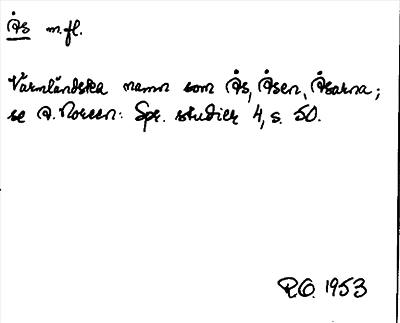 Ås m.fl.
Värmländska namn som Ås, Åsen, Åsarna;
se A. Noreen: Spr. studier 4, s. 50.
R.O. 1953